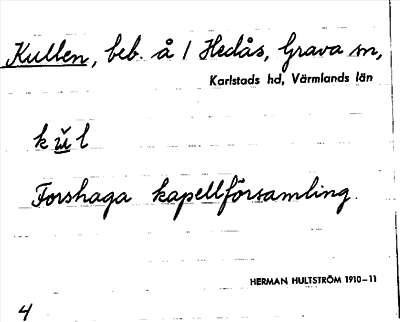 Kullen, beb. å 1 Hedås, Grava sn,
Karlstads hd, Värmlands län
Forshaga kapellförsamling.
HERMAN HULTSTRÖM 1910–11
4